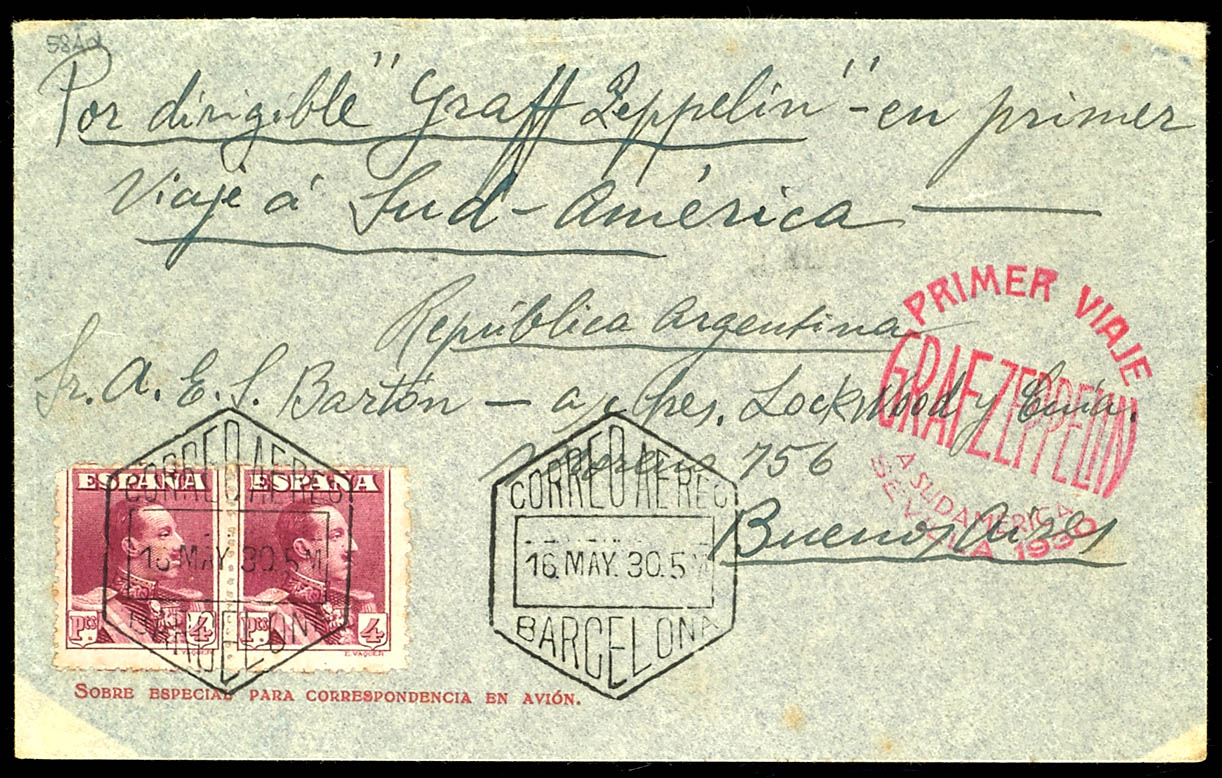 58Ad
Por dirigible "Graff Zeppelin" - en primer
Viaje á Sud-América
República Argentina
Sr. A. E. S. Bartón — a/c Sres. Lockwood y Cuía.
756
Buenos Aires
PRIMER VIAJE
GRAF ZEPPELIN
A SUDAMERICA
SEVILLA 1930
CORREO AEREO
16.MAY.30.5M
BARCELONA
CORREO AEREO
16.MAY.30.5M
BARCELONA
ESPAÑA ESPAÑA
Pts 4 Pts 4
E.VAQUER E.VAQUER
SOBRE ESPECIAL PARA CORRESPONDENCIA EN AVIÓN.